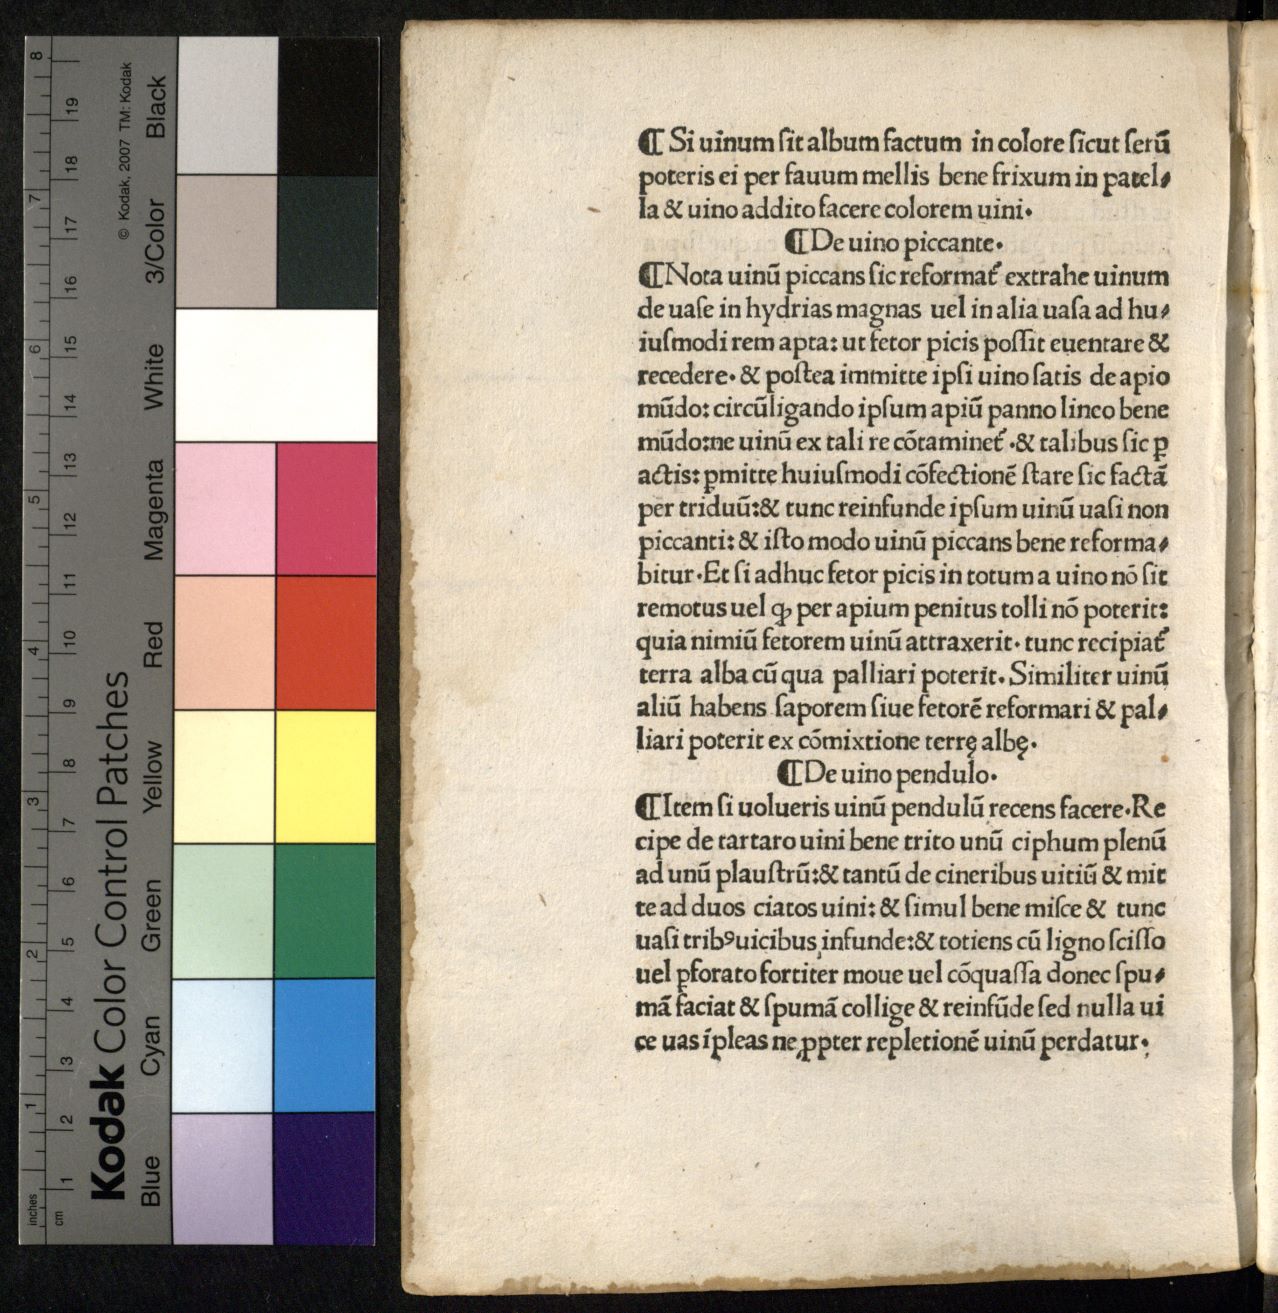 ¶ Si uinum ſit album factum in colore ſicut ſerū
poteris ei per fauum mellis bene frixum in patel⸗
la & uino addito facere colorem uini.
¶ De uino piccante.
¶ Nota uinū piccans ſic reformat᷑ extrahe uinum
de uaſe in hydrias magnas uel in alia uaſa ad hu⸗
iuſmodi rem apta: ut fetor picis poſſit euentare &
recedere. & poſtea immitte ipſi uino ſatis de apio
mūdo: circūligando ipſum apiū panno lineo bene
mūdo:ne uinū ex tali re cōtaminet᷑ .& talibus ſic ꝑ
actis: ꝑmitte huiuſmodi cōfectionē ſtare ſic factā
per triduū:& tunc reinfunde ipſum uinū uaſi non
piccanti: & iſto modo uinū piccans bene reforma⸗
bitur.Et ſi adhuc fetor picis in totum a uino nō ſit
remotus uel ꝙ per apium penitus tolli nō poterit:
quia nimiū fetorem uinū attraxerit. tunc recipiat᷑
terra alba cū qua palliari poterit. Similiter uinū
aliū habens ſaporem ſiue fetorē reformari & pal⸗
liari poterit ex cōmixtione terrę albę.
¶ De uino pendulo.
¶ Item ſi uolueris uinū pendulū recens facere.Re
cipe de tartaro uini bene trito unū ciphum plenū
ad unū plauſtrū:& tantū de cineribus uitiū & mit
te ad duos ciatos uini: & ſimul bene miſce & tunc
uaſi tribꝰ uicibus infunde:& totiens cū ligno ſciſſo
uel ꝑforato fortiter moue uel cōquaſſa donec ſpu⸗
mā faciat & ſpumā collige & reinfūde ſed nulla ui
ce uas īpleas ne ꝓpter repletionē uinū perdatur.
Kodak Color Control Patches
© Kodak, 2007 TM: Kodak
Blue Cyan Green Yellow Red Magenta White 3/Color Black
inches 1 2 3 4 5 6 7 8
cm 1 2 3 4 5 6 7 8 9 10 11 12 13 14 15 16 17 18 19